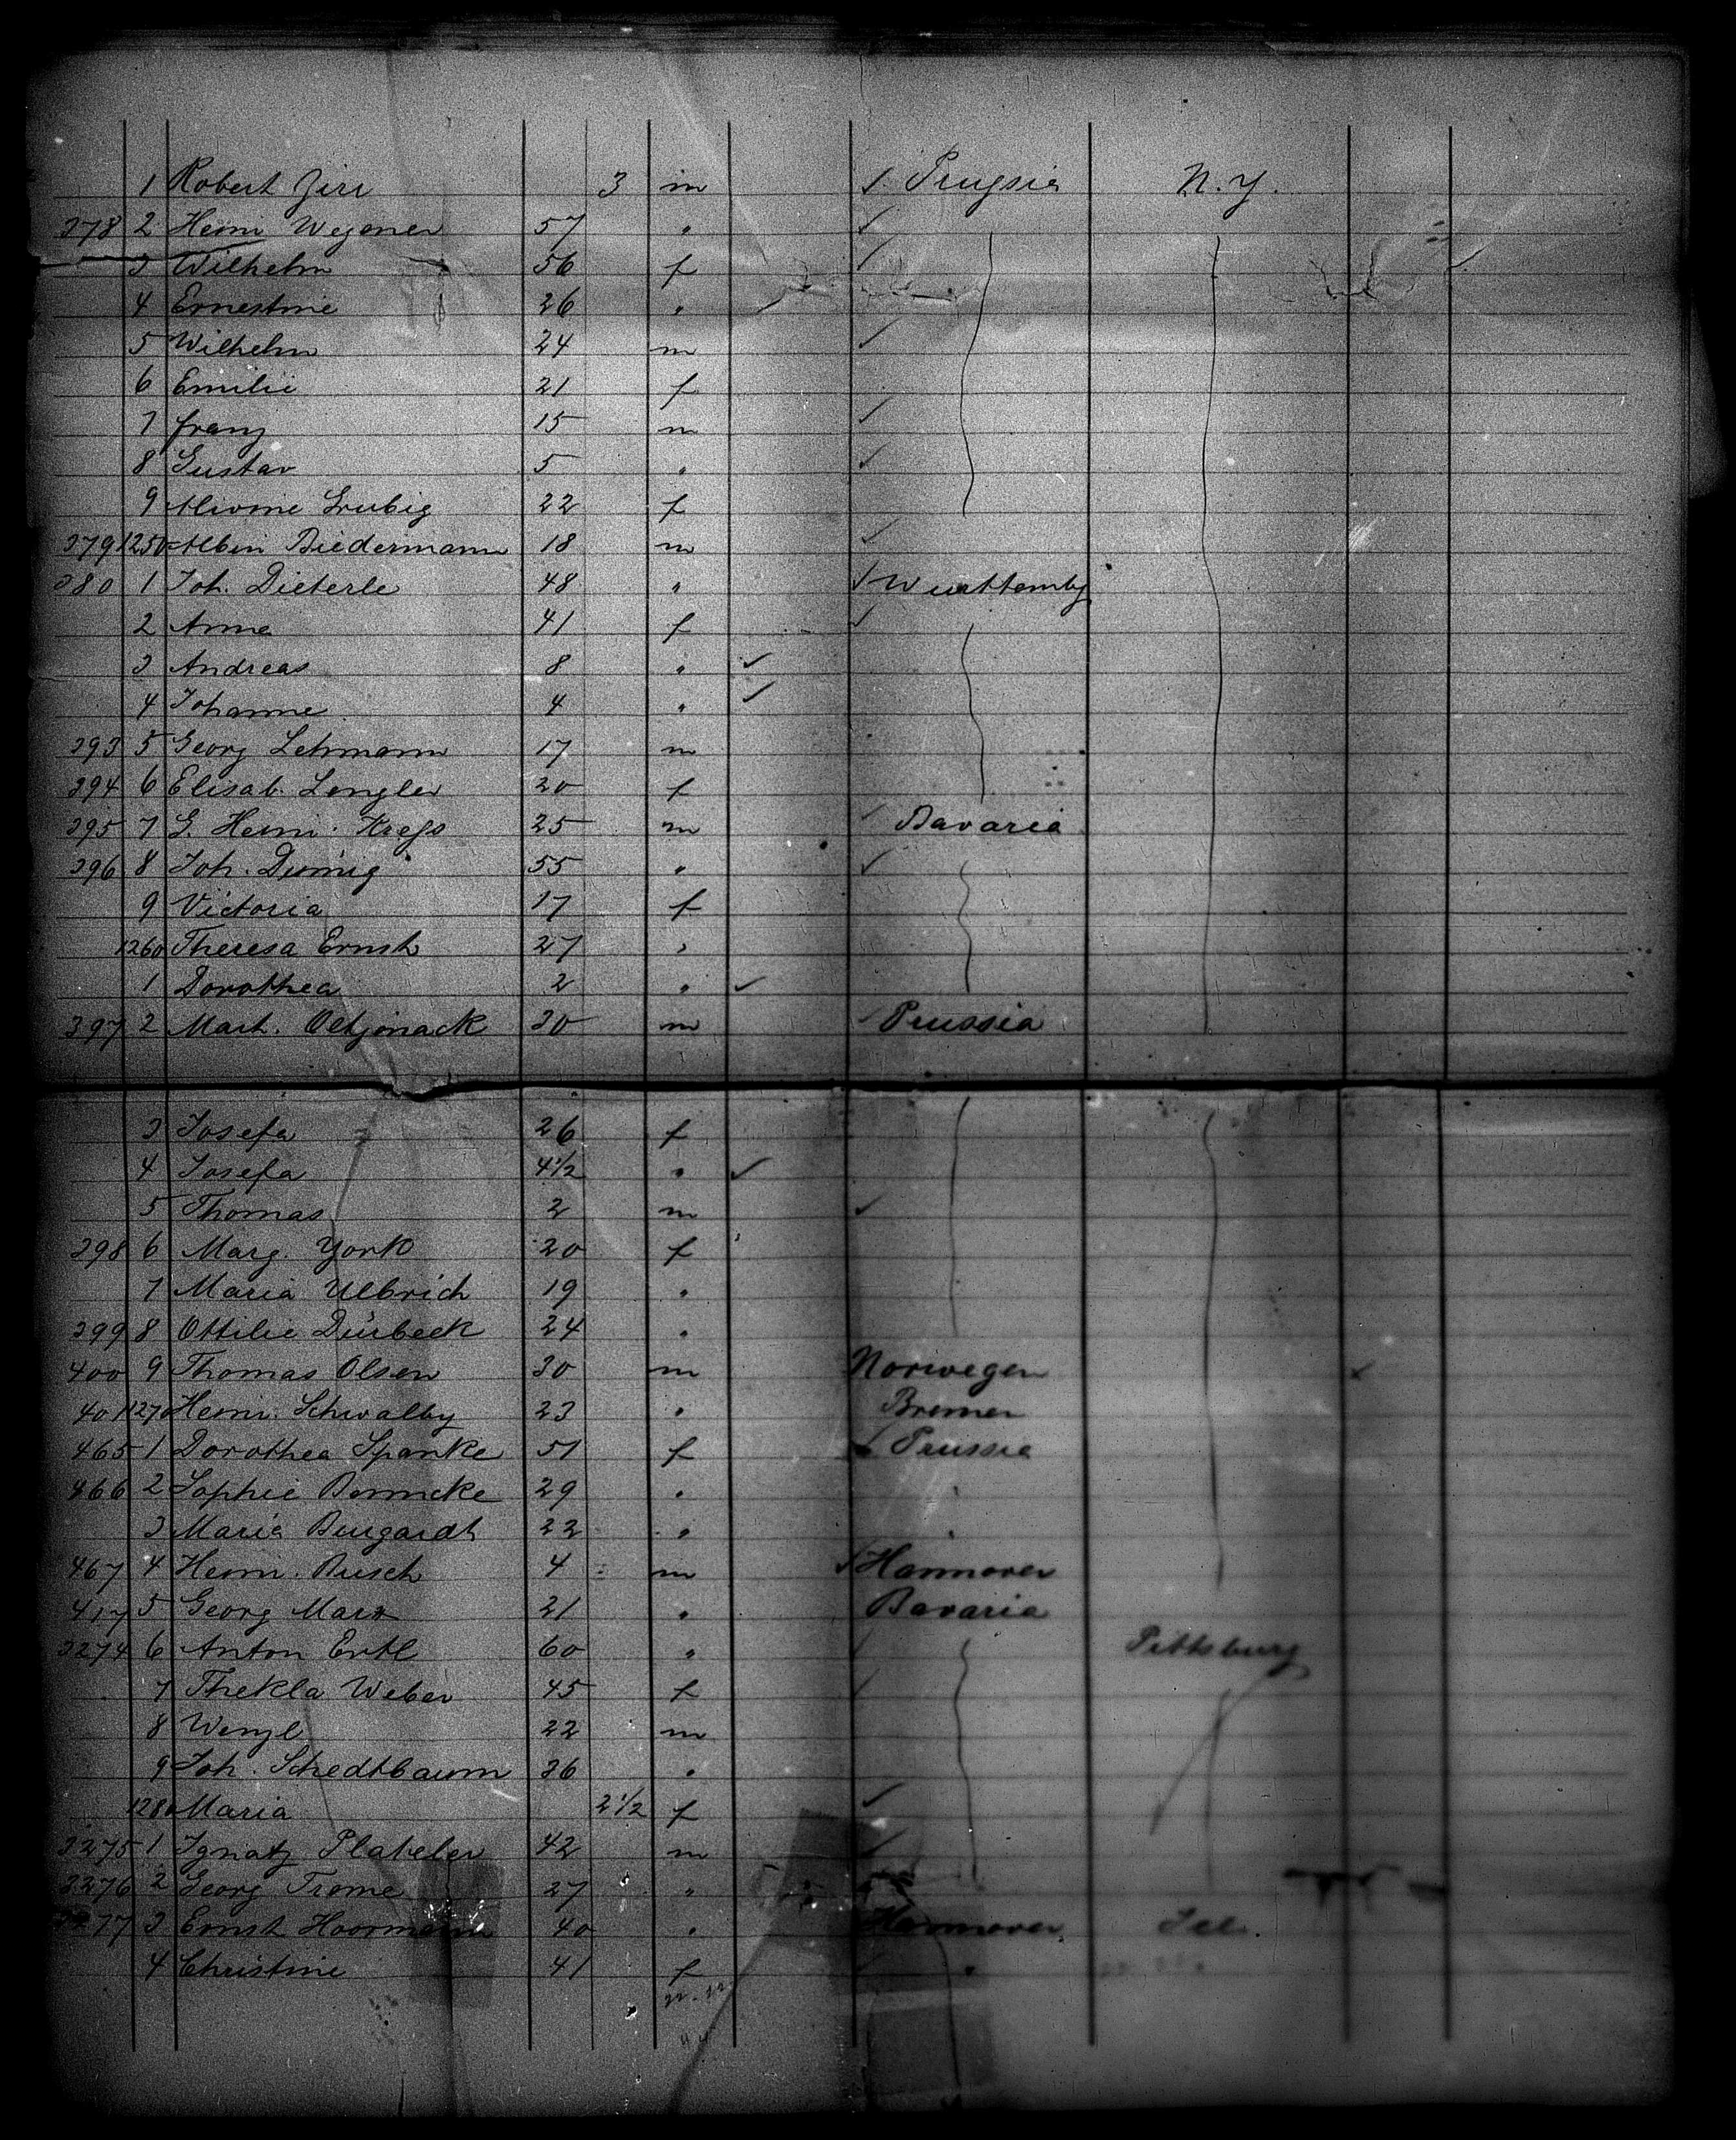 1 Robert Zirr 3 m Prussia N.Y.
378 2 Heinr Wegener 57 "
3 Wilhelm 56 f
4 Ernestine 26 "
5 Wilhelm 24 m
6 Emilie 21 f
7 Franz 15 m
8 Gustav 5 "
9 Alwine Grubig 22 f
379 1250 Albin Biedermann 18 m
380 1 Joh. Dieterle 48 " Wurttembg
2 Anna 41 f
3 Andreas 8 "
4 Johanne 4 "
393 5 Georg Lehmann 17 m
394 6 Elisab. Lengler 20 f
395 7 G. Heinr. 25 m Bavaria
396 8 Joh. 55 "
9 Victoria 17 f
1260 Theresa Ernst 27 "
1 Dorothea 2 "
397 2 Mart. 30 m Prussia
3 Josefa 26 f
4 Josefa 4 1/2 "
5 Thomas 2 m
398 6 Marg. York 20 f
7 Maria Ulbrich 19 "
399 8 Ottilie Dürbeck 24 "
400 9 Thomas Olsen 30 m Norwegen
401 1270 Heinr. Schwalby 23 " Bremen
465 1 Dorothea Spanke 51 f Prussia
466 2 Sophie 29 "
3 Maria Burgardt 22 "
467 4 Heinr. Busch 4 m Hannover
417 5 Georg Marx 21 " Bavaria
3274 6 Anton Ertl 60 " Pittsburg
7 Thekla Weber 45 f
8 Wenzl 22 m
9 Joh. Schedtbaum 36 "
1280 Maria 2 1/2 f
3275 1 Ignatz 42 m
3276 2 Georg Trome 27 "
3277 3 Ernst Hoormann 40 " Hannover Ill.
4 Christine 41 f "